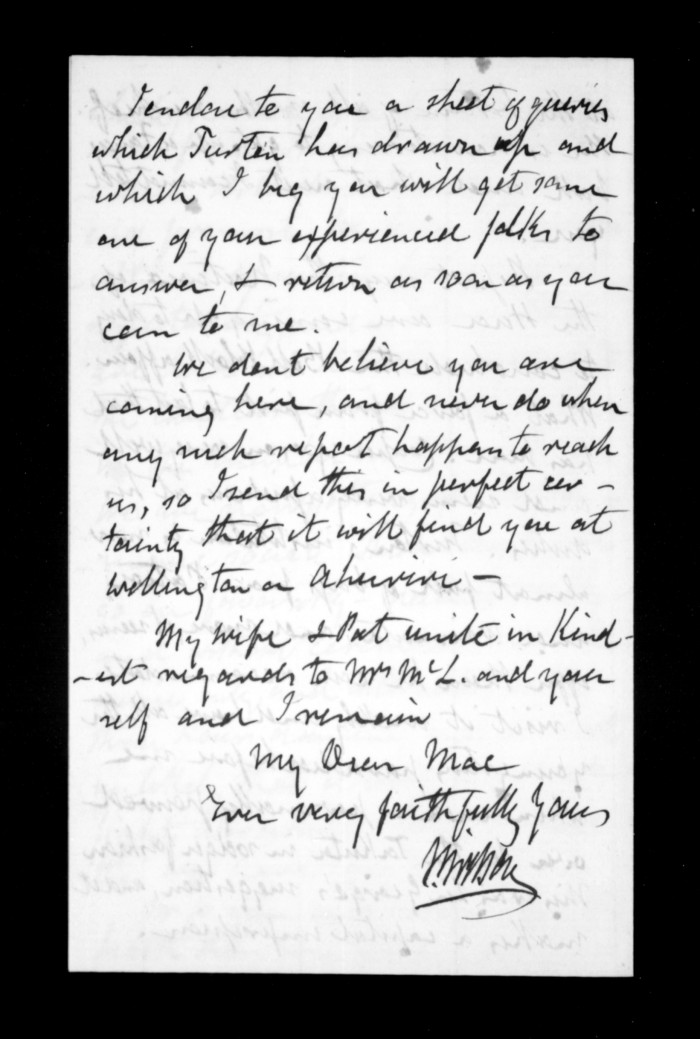 I enclose to you a sheet of queries
which Turton has drawn up and
which I beg you will get some
one of your experienced folks to
answer, & return as soon as you
can to me.
We dont believe you are
coming here, and never do when
any such report happens to reach
us, so I send this in perfect cer-
tainty that it will find you at
Wellington or Ahuriri -
My wife & Pat unite in Kind-
-est regards to Mrs McL. and your
self and I remain
My Dear Mac
Ever very faithfully Yours